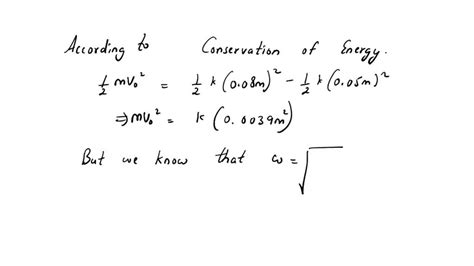 According to Conservation of Energy.
½ mV₀² = ½ k (0.08m)² - ½ k (0.05m)²
⇒ mV₀² = k (0.0039m²)
But we know that ω = √